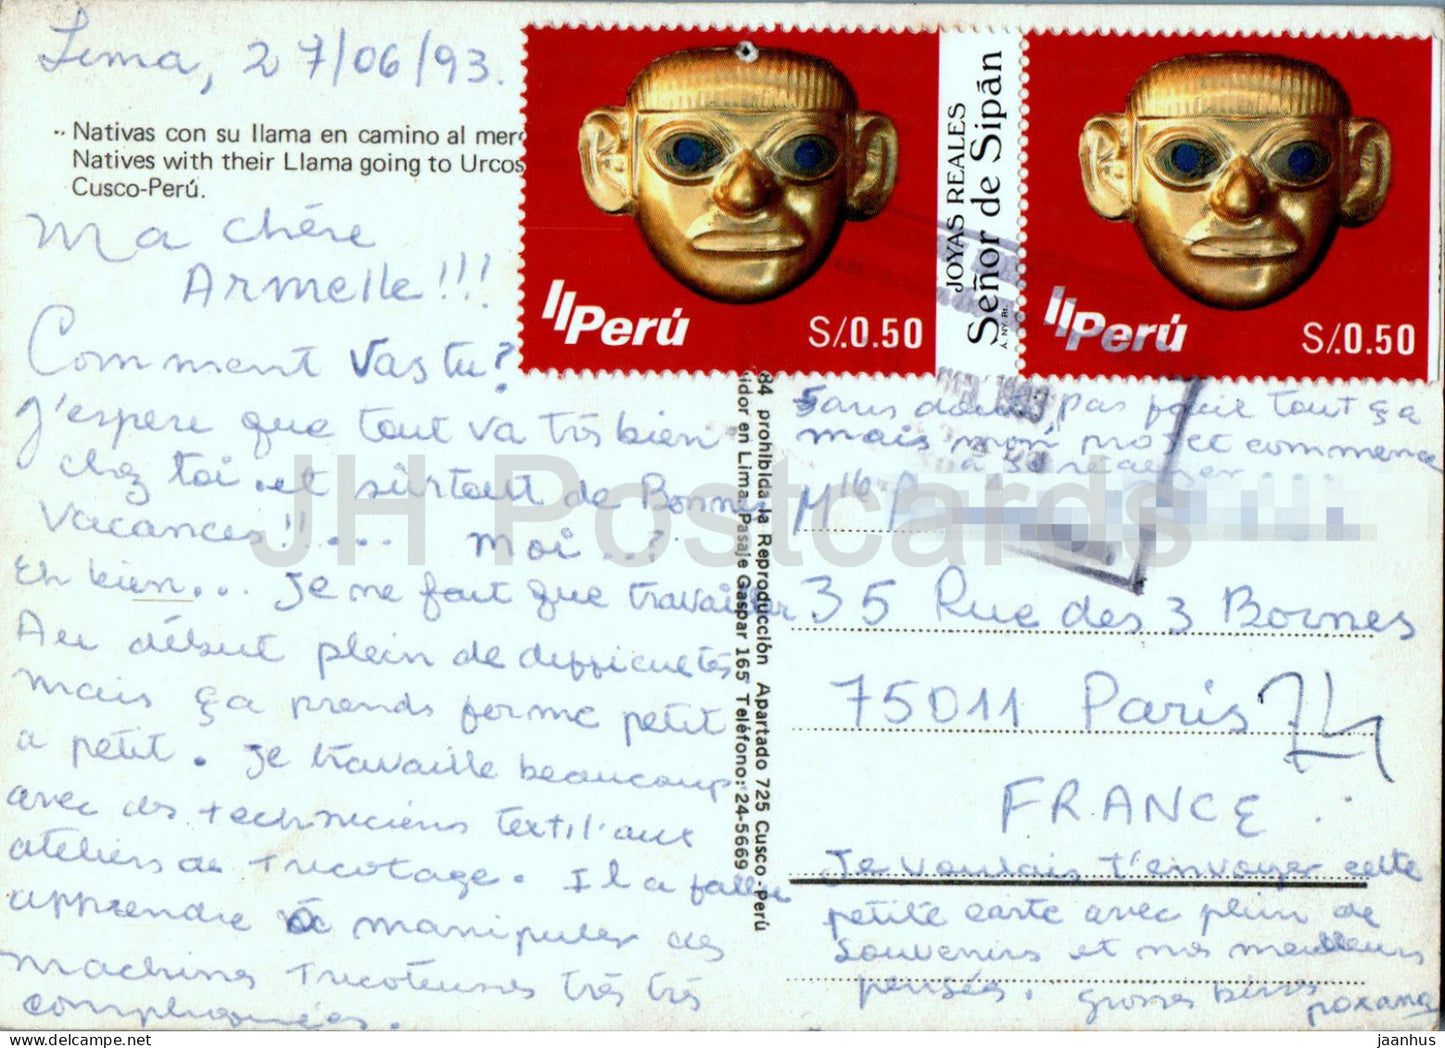 Lima, 27/06/93.
Nativas con su llama en camino al mer
Natives with their Llama going to Urcos,
Cusco-Perú.
Ma chére
Armelle!!!
Comment vas tu?
J'espere que tout va trés bien
chez toi. et sûrtout de Bonnes
vacances!!.... Moi..?
Eh bien... Je ne fait que travailler
Au début plein de difficultés
mais ça prends forme petit
a petit. Je travaille beaucoup
avec des techniciens textil'aux
ateliers de tricotage. Il a fallu
apprendre à manipuler des
machines tricoteuses trés trés
compliquées.
IIPerú
S/.0.50
JOYAS REALES
Señor de Sipán
A. NY. Rt.
IIPerú
S/.0.50
84 prohibida la Reproducción Apartado 725 Cusco - Perú
idor en Lima: Pasaje Gaspar 165 Teléfono: 24-5669
Sans doute pas facil tout ça
mais mon projet commence
a se réaliser...
M
35 Rue des 3 Bornes
75011 Paris
FRANCE.
Je voulais t'envoyer cette
petite carte avec plein de
souvenirs et mes meilleurs
pensées. grosses bises
Roxana
JH Postcards
jaanhus